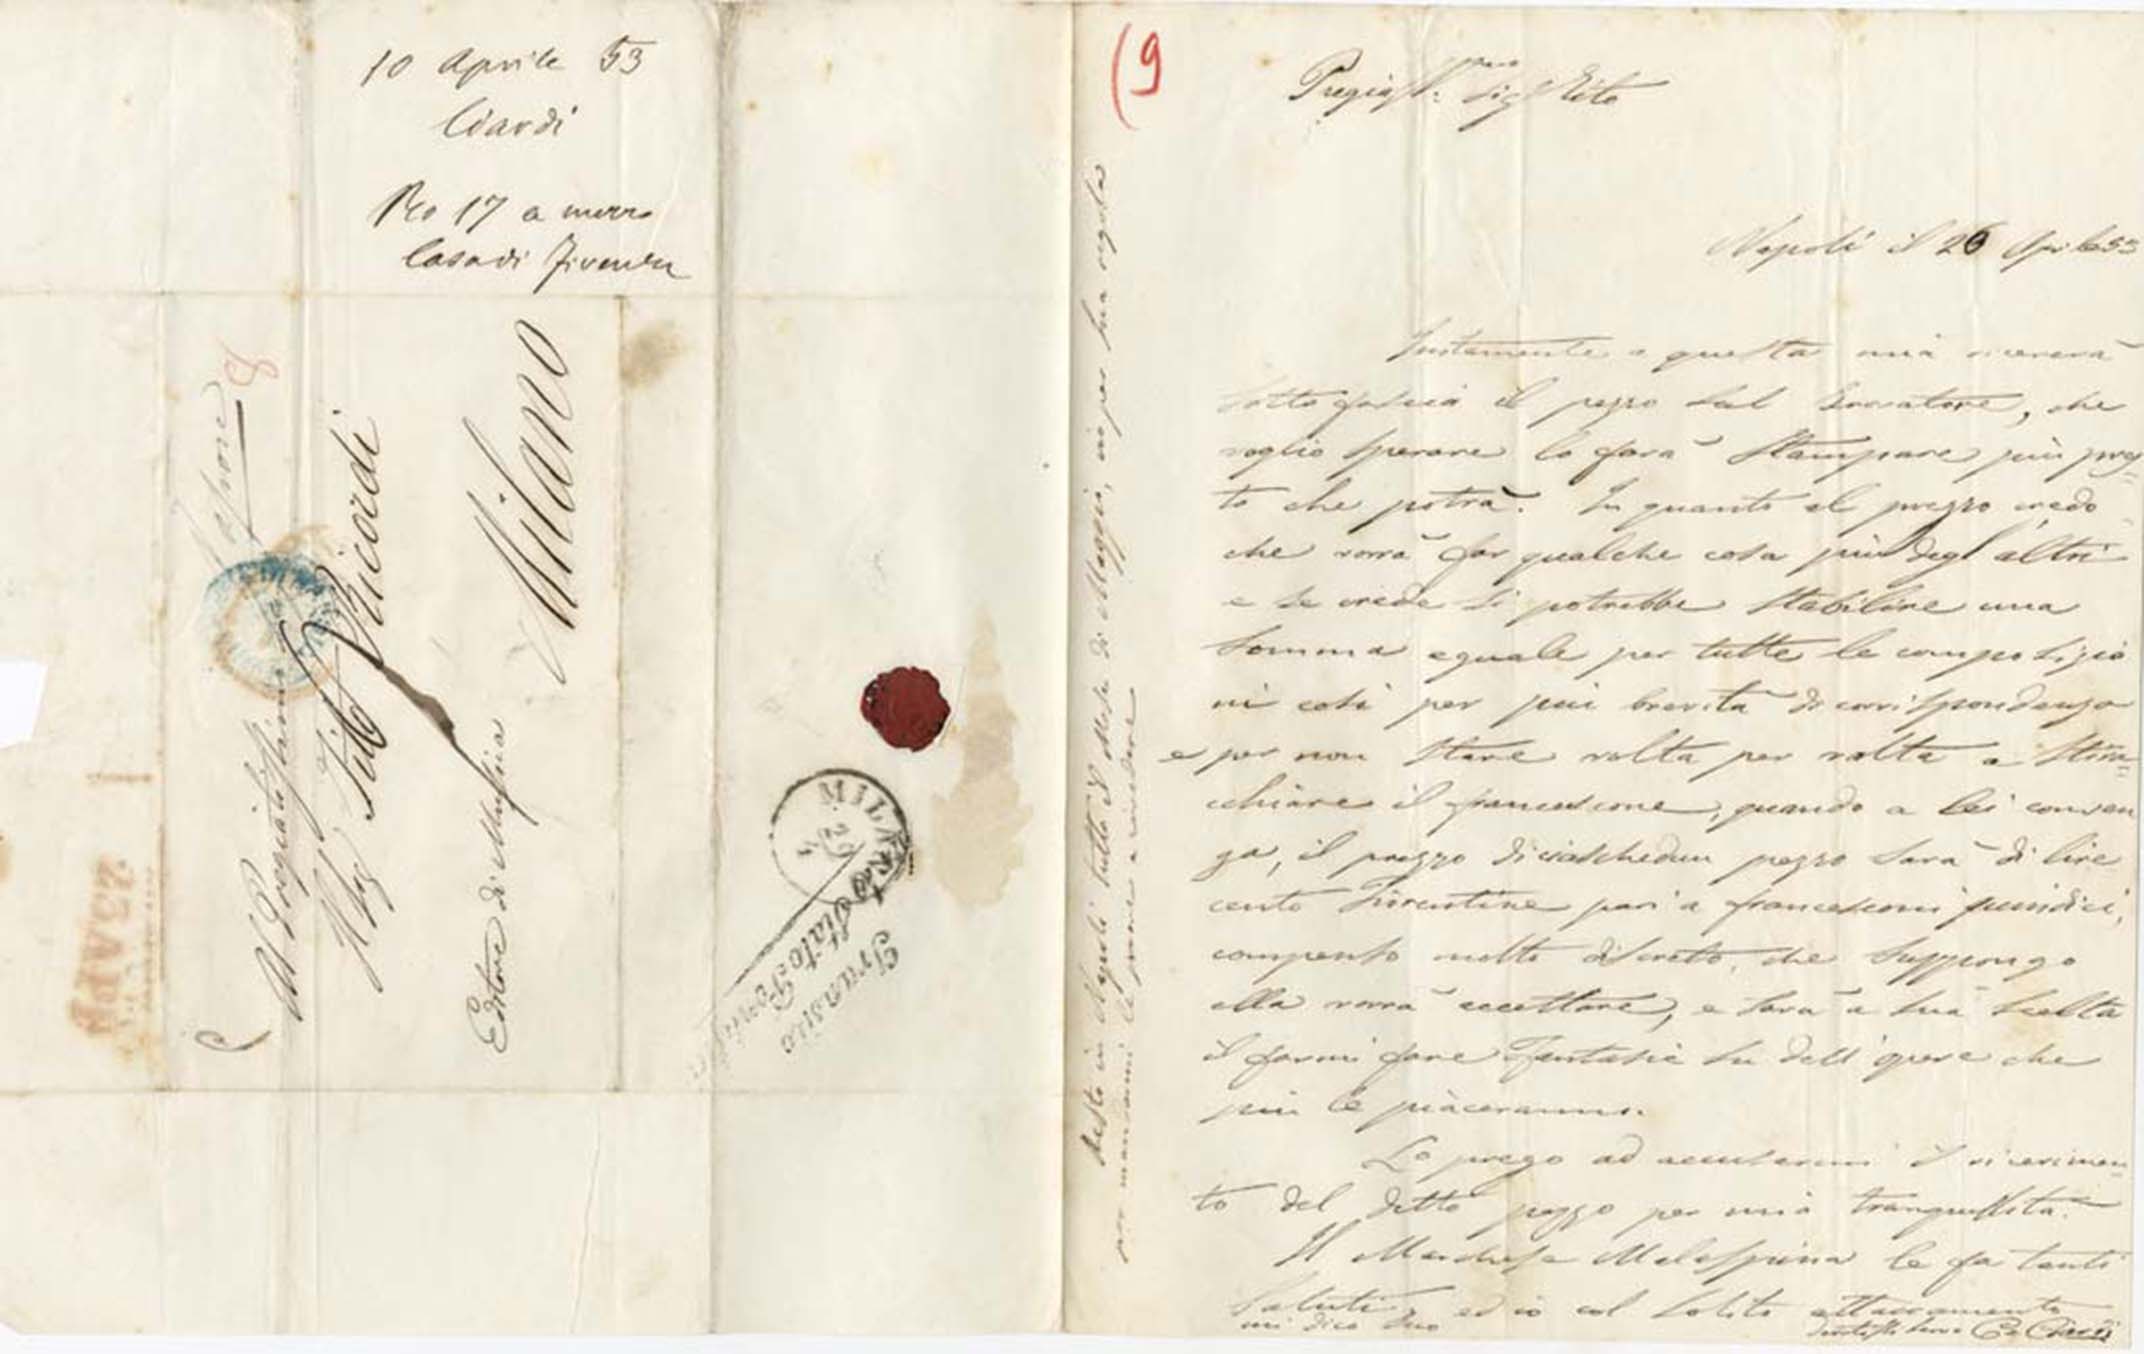 10 Aprile 53
Ciardi
17 a
Casa di
Vapore
8
Al Pregiatissimo
Sig Tito Ricordi
Editore di Musica
Milano
MILANO
Transito
Stato Pontif
(9
Pregiatss: Sigr Tito
Napoli il 26 Aprile 53
Resto in Napoli tutto il Mese di Maggio, ciò per sua regola
per mandarmi le prove a rivedere
Unitamente a questa mia riceverà
sotto fascia il pezzo sul Trovatore, che
voglio sperare lo farà stampare più pres=
to che potrà. In quanto al prezzo credo
che vorrà far qualche cosa più degl'altri
e se crede si potrebbe stabilire una
somma eguale per tutte le composizio
ni così per più brevità di corrispondenza
e per non stare volta per volta a stira=
cchiare il francescone, quando a lei conven
ga, il prezzo di ciaschedun pezzo sarà di lire
cento fiorentine pari a francesconi quindici,
compenso molto discreto, che suppongo
ella vorrà accettare, e sarà a sua scelta
il farmi fare Fantasie su dell'opere che
più le piaceranno.
La prego ad accusarmi il ricevimen=
to del detto pezzo per mia tranquillità.
Il Marchese Malaspina le fa tanti
saluti, ed io col solito attaccamento
mi dico suo
Ce Ciardi